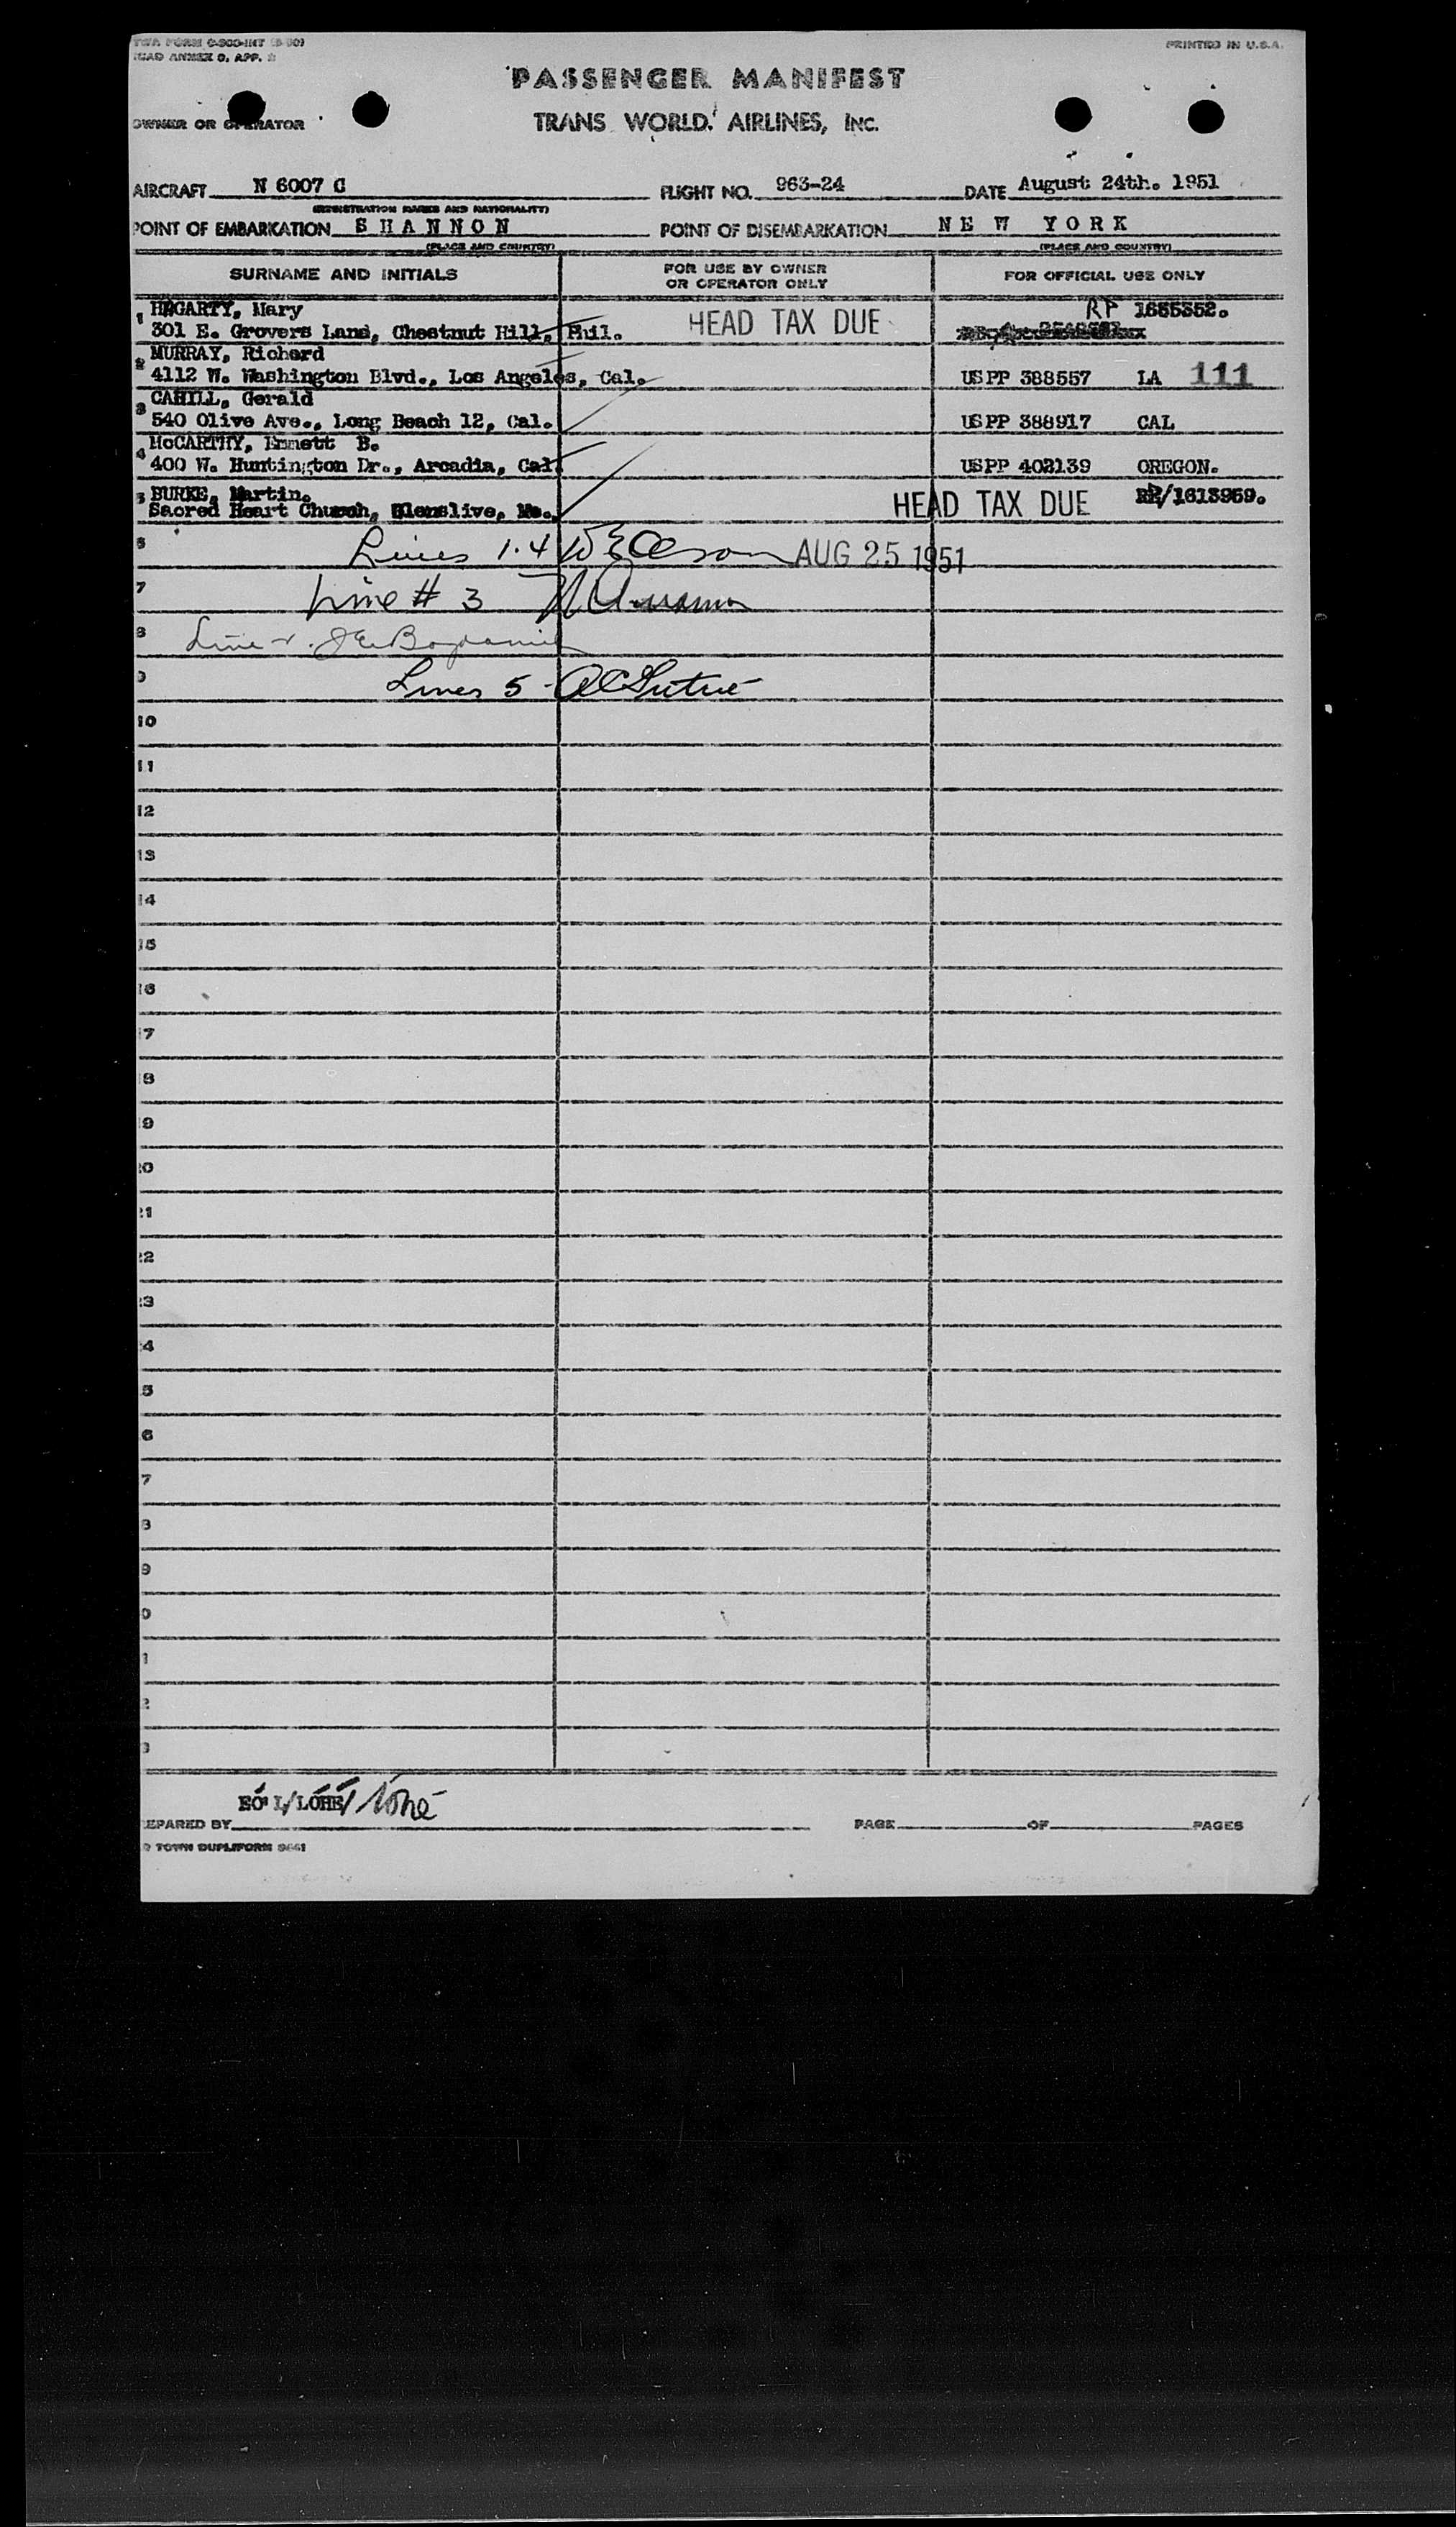 TWA FORM
PRINTED IN U.S.A.
ICAO ANNEX 9, APP.
PASSENGER MANIFEST
OWNER OR OPERATOR
TRANS WORLD AIRLINES, INC.
AIRCRAFT N 6007 C FLIGHT NO. 963-24 DATE August 24th. 1951
(REGISTRATION MARKS AND NATIONALITY)
POINT OF EMBARKATION S H A N N O N POINT OF DISEMBARKATION N E W Y O R K
(PLACE AND COUNTRY) (PLACE AND COUNTRY)
SURNAME AND INITIALS FOR USE BY OWNER OR OPERATOR ONLY FOR OFFICIAL USE ONLY
1 HEGARTY, Mary RP 1655352.
301 E. Grovers Lane, Chestnut Hill, Phil. HEAD TAX DUE
2 MURRAY, Richard
4112 W. Washington Blvd., Los Angeles, Cal. USPP 388557 LA 111
3 CAHILL, Gerald
540 Olive Ave., Long Beach 12, Cal. USPP 388917 CAL
4 McCARTHY, Emmett B.
400 W. Huntington Dr., Arcadia, Cal. USPP 402139 OREGON.
5 BURKE, Martin. HEAD TAX DUE /1613969.
Sacred Heart Church,
6 Lines 1.4 AUG 25 1951
7 Line # 3
8 Line
9 Lines 5 -
10
11
12
13
14
15
16
17
18
19
20
21
22
23
24
25
26
27
28
29
30
31
32
33
PREPARED BY PAGE OF PAGES
TOWN DUPLIFORM